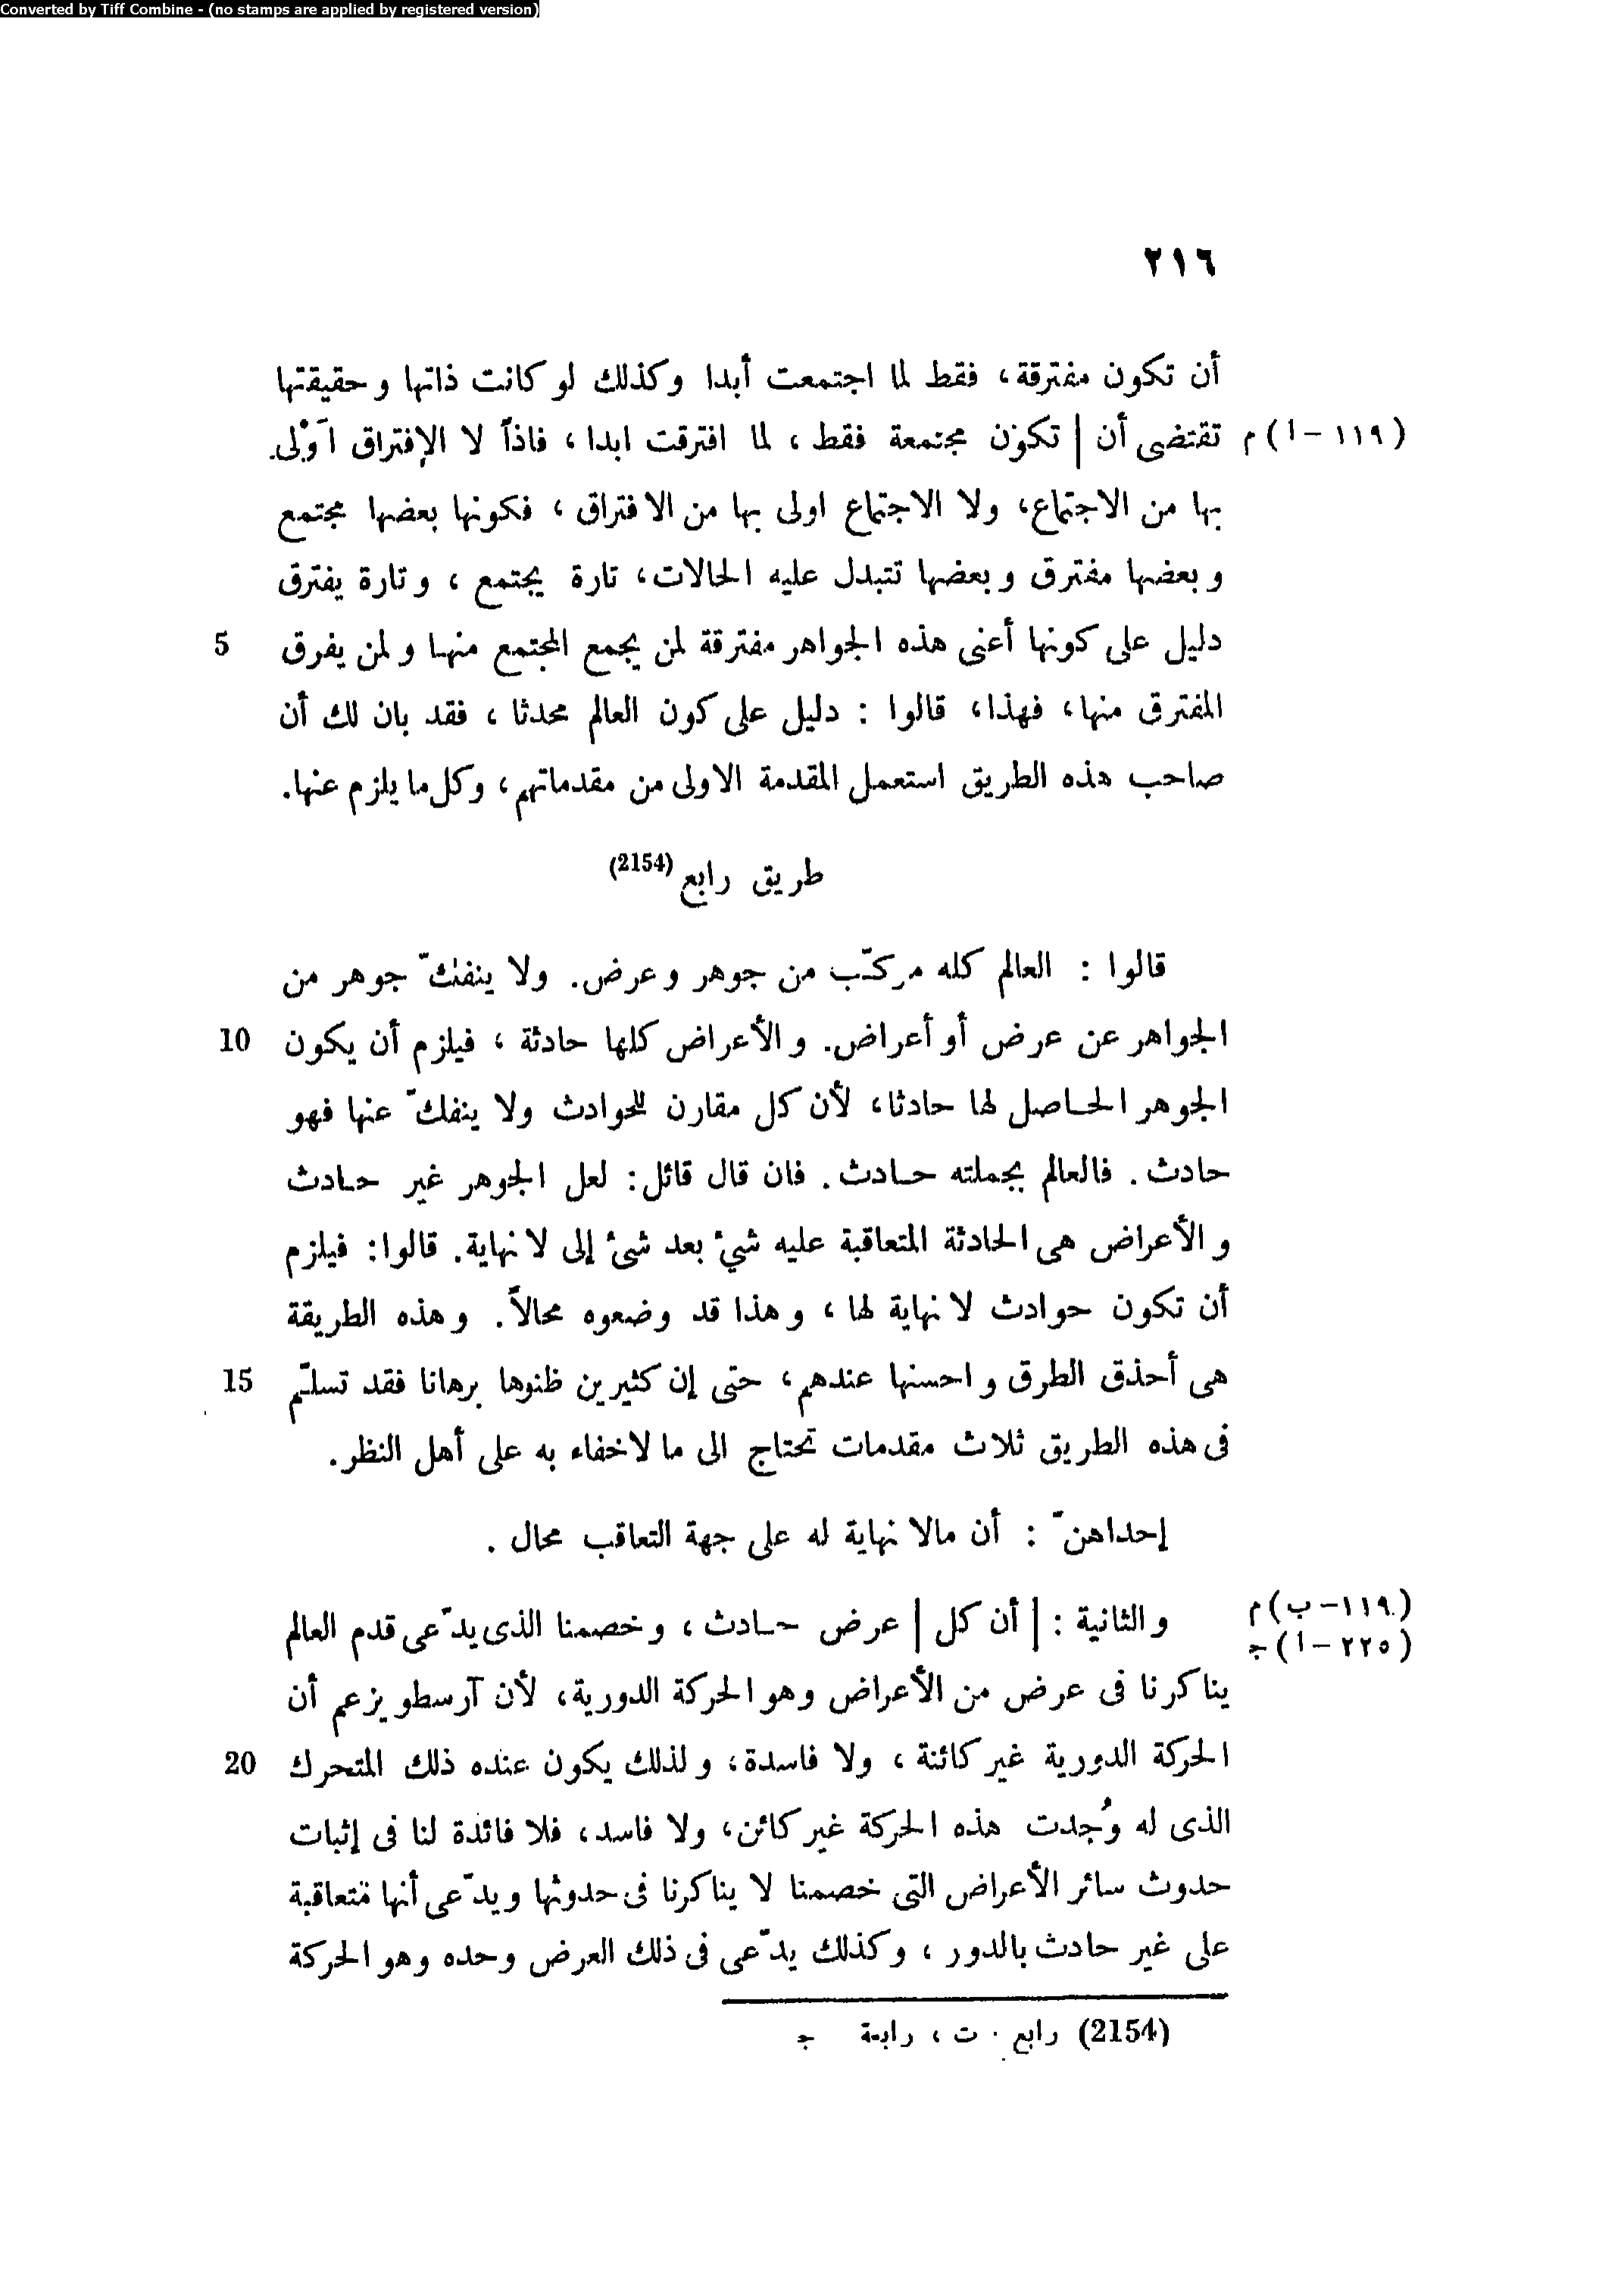 Converted by Tiff Combine - (no stamps are applied by registered version)
٢١٦
أن تكون مفترقة، فقط لما اجتمعت أبدا وكذلك لو كانت ذاتها وحقيقتها
(١١٩-ا)م تقتضى أن | تكون مجتمعة فقط، لما افترقت ابدا، فاذاً لا الإفتراق اَوْلى.
بها من الاجتماع، ولا الاجتماع اولى بها من الافتراق، فكونها بعضها مجتمع
وبعضها مفترق وبعضها تتبدل عليه الحالات، تارة يجتمع، وتارة يفترق
دليل على كونها أعنى هذه الجواهر مفترقة لمن يجمع المجتمع منها ولمن يفرق 5
المفترق منها، فهذا، قالوا : دليل على كون العالم محدثا، فقد بان لك أن
صاحب هذه الطريق استعمل المقدمة الاولى من مقدماتهم، وكل ما يلزم عنها.
طريق رابع (2154)
قالوا : العالم كله مركّب من جوهر وعرض. ولا ينفكّ جوهر من
الجواهر عن عرض أو أعراض. والأعراض كلها حادثة، فيلزم أن يكون 10
الجوهر الحاصل لها حادثا، لأن كل مقارن للحوادث ولا ينفكّ عنها فهو
حادث. فالعالم بجملته حادث. فان قال قائل: لعل الجوهر غير حادث
والأعراض هى الحادثة المتعاقبة عليه شىء بعد شىء إلى لا نهاية. قالوا: فيلزم
أن تكون حوادث لا نهاية لها، وهذا قد وضعوه محالاً. وهذه الطريقة
هى أحذق الطرق واحسنها عندهم، حتى إن كثيرين ظنوها برهانا فقد تسلّم 15
فى هذه الطريق ثلاث مقدمات تحتاج الى ما لاخفاء به على أهل النظر.
إحداهنّ : أن مالا نهاية له على جهة التعاقب محال.
(١١٩-ب)م والثانية : | أن كل | عرض حادث، وخصمنا الذى يدّعى قدم العالم
(٢٢٥-ا)ج
يناكرنا فى عرض من الأعراض وهو الحركة الدورية، لأن آرسطو يزعم أن
الحركة الدورية غير كائنة، ولا فاسدة، ولذلك يكون عنده ذلك المتحرك 20
الذى له وُجدت هذه الحركة غير كائن، ولا فاسد، فلا فائدة لنا فى إثبات
حدوث سائر الأعراض التى خصمنا لا يناكرنا فى حدوثها ويدّعى أنها متعاقبة
على غير حادث بالدور، وكذلك يدّعى فى ذلك العرض وحده وهو الحركة
(2154) رابع . ت ، رابعة ج